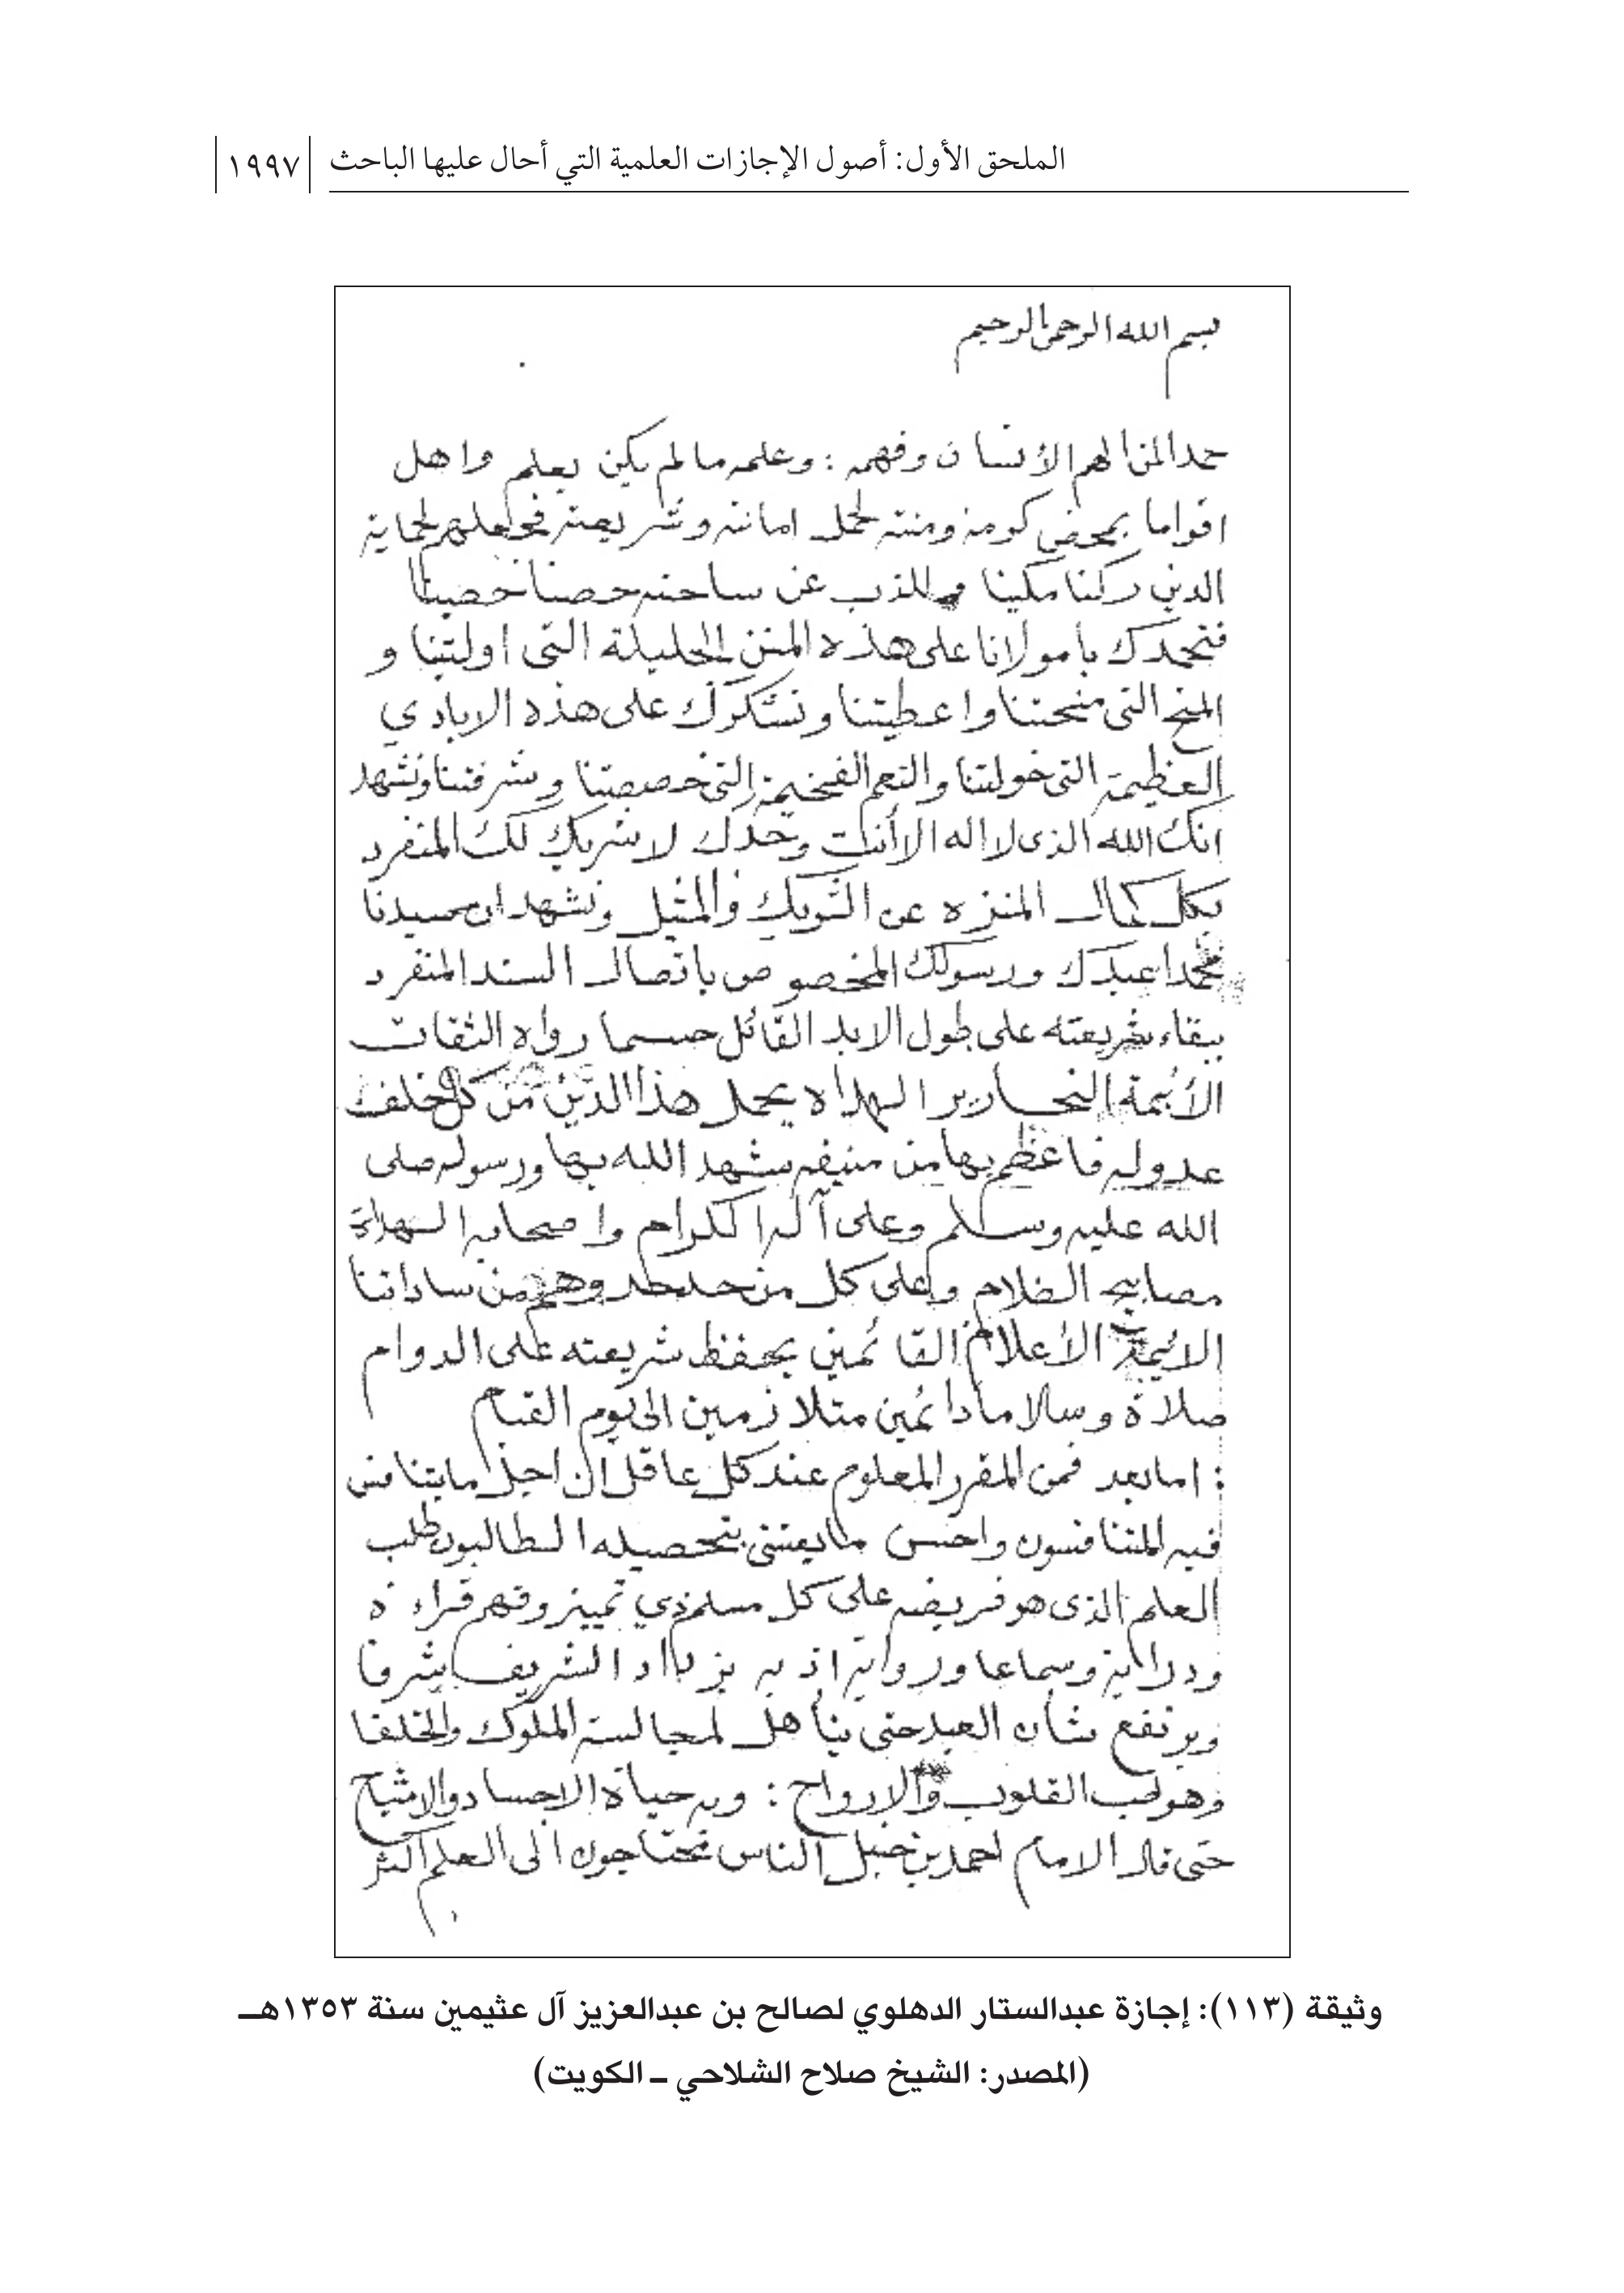 الملحق الأول: أصول الإجازات العلمية التي أحال عليها الباحث | ١٩٩٧
بسم الله الرحمن الرحيم
حمدا لمن الهم الأنسان وفهمه : وعلمه ما لم يكن يعلم واهل
اقواما بمحض كرمه ومنته لحمل امانته وشريعته فجعلهم لحماية
الدين ركنا مكينا وللذب عن ساحته حصنا حصينا
فنحمدك يا مولانا على هذه المنن الجليلة التى اوليتنا و
المنح التى منحتنا واعطيتنا ونشكرك على هذه الايادي
العظيمة التى خولتنا والنعم الفخيمة التى خصصتنا وشرفتنا ونشهد
انك الله الذى لا اله الا أنت وحدك لا شريك لك المنفرد
بكل كمال المنزه عن الشريك والمثيل ونشهد ان سيدنا
محمدا عبدك ورسولك المخصوص باتصال السند المنفرد
ببقاء شريعته على طول الابد القائل حسبما رواه الثقات
الأئمة النحارير الهداه يحمل هذا الدين من كل خلف
عدوله فاعظم بها من منقبه شهد الله بها ورسوله صلى
الله عليه وسلم وعلى آله الكرام واصحابه الهداة
مصابيح الظلام وعلى كل من حذ حذوهم من ساداتنا
الائمة الأعلام القائمين بحفظ شريعته على الدوام
صلاة وسلاما دائمين متلازمين الى يوم القيام
: اما بعد فمن المقرر المعلوم عند كل عاقل ان اجل ما يتنافس
فيه المتنافسون واحسن ما يعتنى بتحصيله الطالبون طلب
العلم الذى هو فريضه على كل مسلم ذي تمييز وفهم قراءة
ودراية وسماعا ورواية اذ به يزداد الشريف شرفا
ويرتفع شان العبد حتى يتأهل لمجالسة الملوك والخلفا
وهو لب القلوب والارواح : وبه حياة الاجساد والاشباح
حتى قال الامام احمد بن حنبل الناس محتاجون الى العلم اكثر
وثيقة (١١٣): إجازة عبدالستار الدهلوي لصالح بن عبدالعزيز آل عثيمين سنة ١٣٥٣هـ
(المصدر: الشيخ صلاح الشلاحي ـ الكويت)